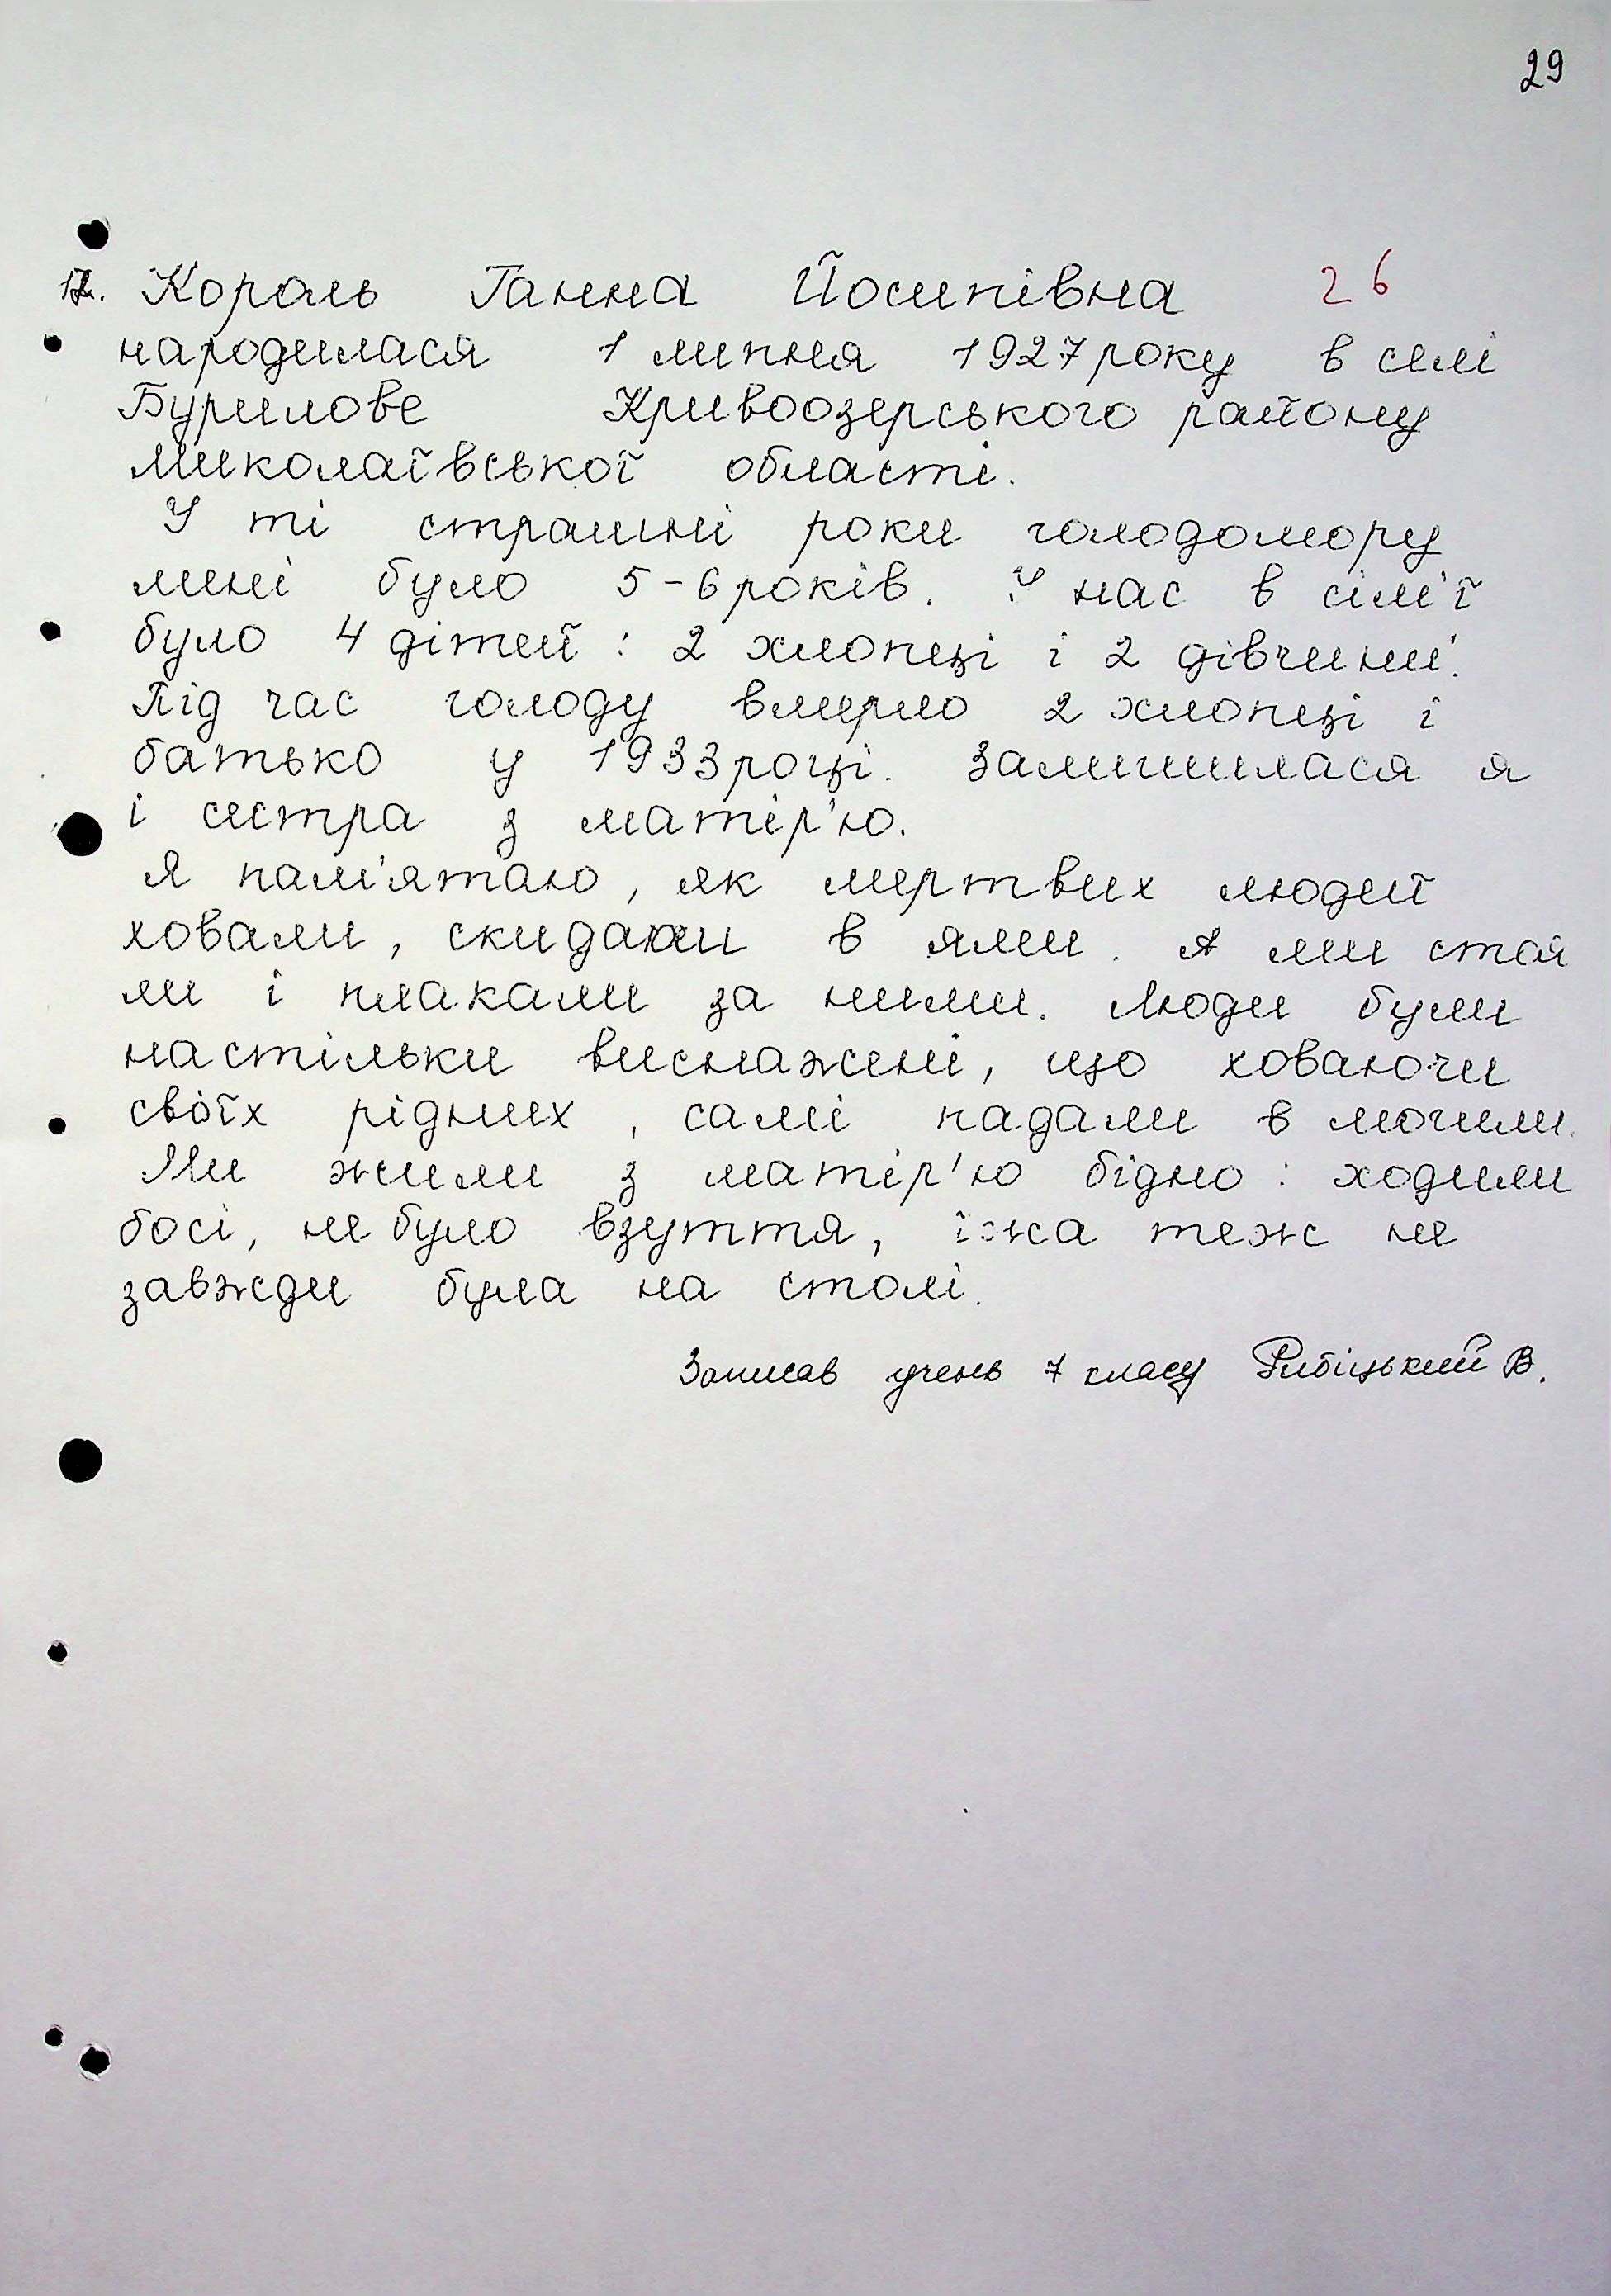 29
17. Король Ганна Йосипівна 26
народилася 1 липня 1927 року в селі
Бурилове Кривоозерського району
Миколаївської області.
У ті страшні роки голодомору
мені було 5-6 років. У нас в сім'ї
було 4 дітей : 2 хлопці і 2 дівчини.
Під час голоду вмерло 2 хлопці і
батько у 1933 році. Залишилася я
і сестра з матір'ю.
Я пам'ятаю, як мертвих людей
ховали, скидали в ями. А ми стоя
ли і плакали за ними. Люди були
настільки виснажені, що ховаючи
своїх рідних, самі падали в могили.
Ми жили з матір'ю бідно : ходили
босі, не було взуття, їжа теж не
завжди була на столі.
Записав учень 7 класу Рибіцький В.